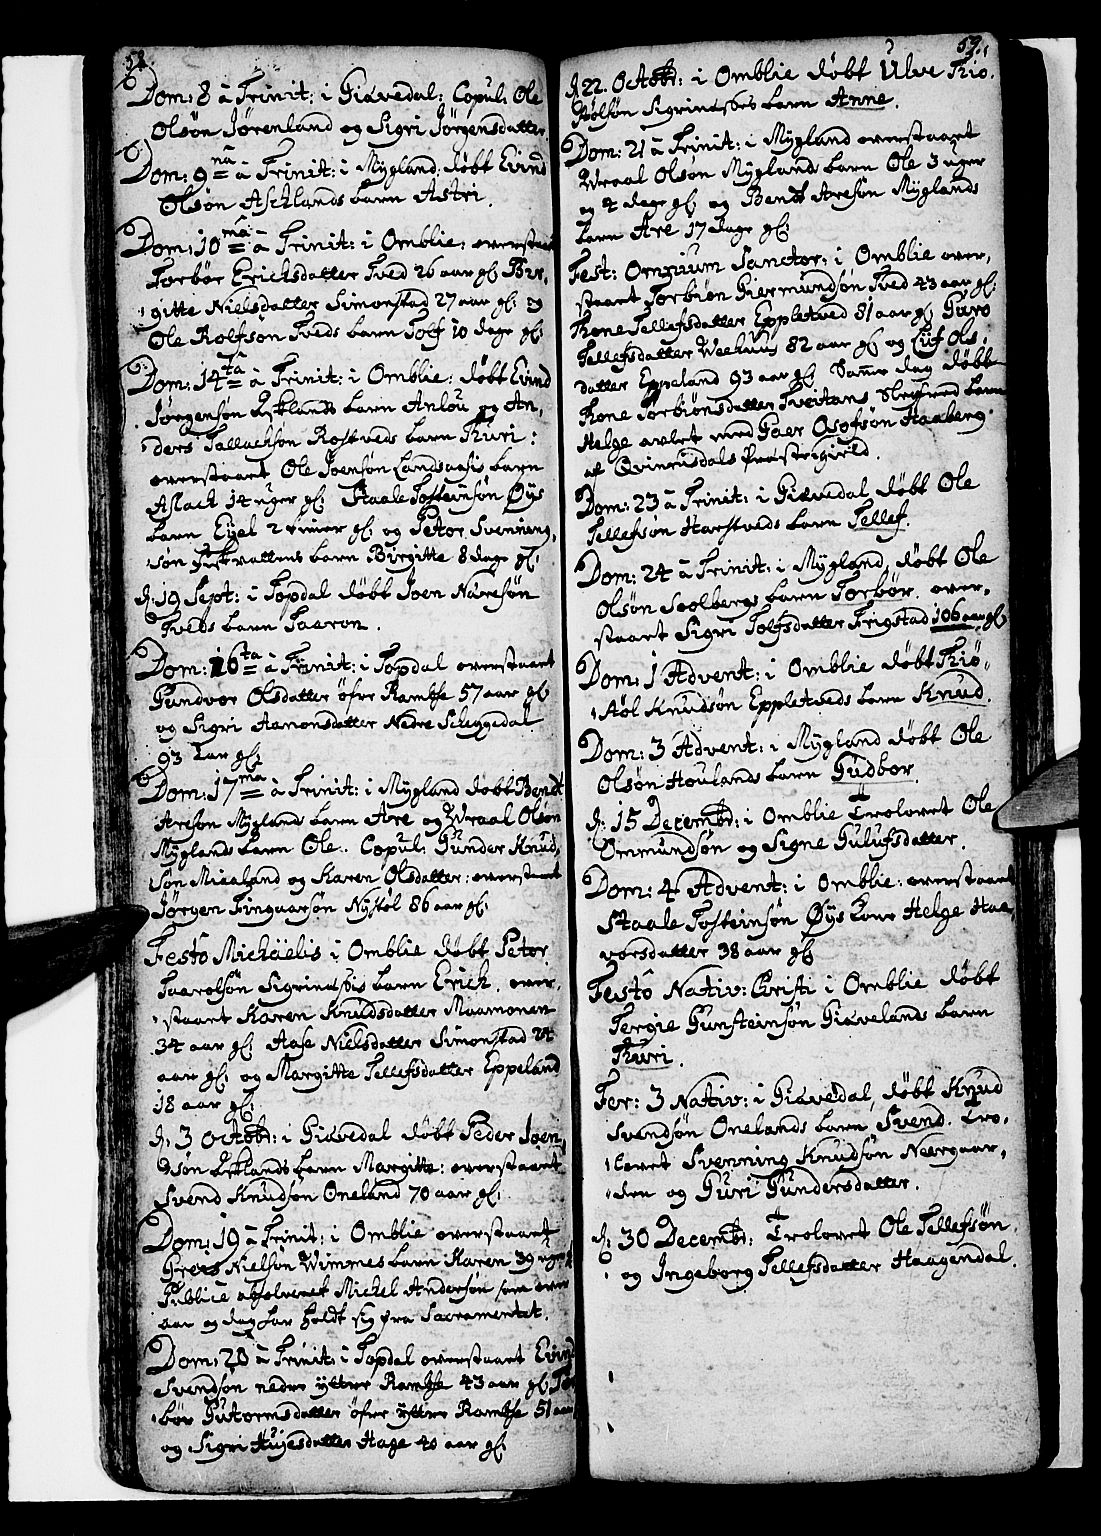 58.
Dom: 8 à Trinit: i Giøvedal: Copul: Ole
Olsøn Jørenland og Sigri Jørgensdatter.
Dom: 9na à Trinit: i Mygland: døbt Eivind
Olsøn Aschlands barn Astri.
Dom: 10ma à Trinit: i Omblie: overstaaet
Torbør Erichsdatter Tved 26 aar gl: Bir-
gitte Nielsdatter Simonstad 27 aar gl: og
Ole Rolfson Tveds barn Tolf 10 dage gl:
Dom: 14ta à Trinit: i Omblie: døbt Eivind
Jørgensøn barn Anlou og An-
ders Tallachson Rostveds barn Thuri:
overstaaet Ole Joensøn Landsaasis barn
Aslach 14 uger gl: Staale Tosteinsøn Øys
barn Eyel 2 timer gl: og Peter Svenning-
søn barn Birgitte 8 dage gl:
d: 19 Sept: i Topdal døbt Joen Nåresøn
Tveds barn Taaron.
Dom: 16ta à Trinit: i Topdal overstaaet
Gundvor Olsdatter øfre Ramse 57 aar gl:
og Sigri Aamonsdatter Nedre Scheggedal
93 aar gl:
Dom: 17ma à Trinit: i Mygland døbt Bendt
Areson Mygland barn Are og Wraal Olsøn
Myglands barn Ole. Copul: Gunder Knud-
søn Micaland og Karen Olsdatter: overstaaet
Jørgen Tinguarsøn Nystøl 86 aar gl:
Festo Michäelis i Omblie døbt Peter
Taarolsøn barn Erich. over-
staaet Karen Knudsdatter Maamonen
34 aar gl: Aase Nielsdatter Simonstad 24
aar gl: og Margitte Tellefsdatter Eppeland
18 aar gl:
d: 3 Octobr: i Giøvedal døbt Peder Joen-
søn barn Margitte: overstaaet
Svend Knudsøn Oneland 70 aar gl:
Dom: 19 à Trinit: i Omblie overstaaet
Nielsøn Wimmes barn Karen 39 uger gl:
Publice absolveret Michel Andersøn som over
aar og dag har holdt sig fra Sacramentet.
Dom: 20 à Trinit: i Topdal overstaaet Eivind
Svendsøn nedre yttre Ramse 43 aar gl: Tor-
bør Gutormsdatter øfre yttre Ramse 51 aar
og Sigri Huyesdatter Hage 40 aar gl:
59.
d. 22. Octobr: i Omblie døbt Ulve Thio-
stølsøn barn Anne.
Dom: 21 à Trinit: i Mygland overstaaet
Wraal Olsøn Mygland barn Ole 3 uger
og 4 dage gl: og Bendt Aresøn Myglands
barn Are 17 dage gl:
Fest: Omnium Sanctor: i Omblie over-
staaet Torbiøn Giermundsøn Tved 43 aar gl:
Thone Tellefsdatter Eppletved 81 aar gl: Guro
Tellefsdatter Weehuus 82 aar gl: og Liif Ols-
datter Eppeland 93 aar gl: Samme dag døbt
Thone Torbiønsdatter Tveitans Slegfred barn
Helge avlet med Gaer Osofsøn Haaberg
af Qvinnisdals Præstegield.
Dom: 23 à Trinit: i Giøvedal, døbt Ole
Tellefsøn Harstveds barn Tellef.
Dom: 24 à Trinit: i Mygland, døbt Ole
Olsøn Soolbergs barn Torbør. over-
staaet Sigri Tolfsdatter Frigstad 106 aar gl:
Dom: 1 Advent: i Omblie døbt Thiø-
støl Knudsøn Eppletveds barn Knud.
Dom: 3 Advent: i Mygland døbt Ole
Olsøn Houlands barn Gudbor.
d: 15 Decembr: i Omblie Trolovet Ole
Ommundsøn og Signe Gulufsdatter.
Dom: 4 Advent: i Omblie: overstaaet
Staale Tosteinsøn Øys kone Helge Haa-
vorsdatter 38 aar gl:
Festo Nativ: Christi i Omblie døbt
Tergie Gunsteinsøn Giøvelands barn
Thuri.
Fer: 3 Nativ: i Giøvedal, døbt Knud
Svendsøn Onelands barn Svend. Tro-
lovet Svenning Knudsøn Neergaar-
den og Guri Gundersdatter.
d: 30 Decembr: Trolovet Ole Tellefsøn
og Ingeborg Tellefsdatter Haagendal.